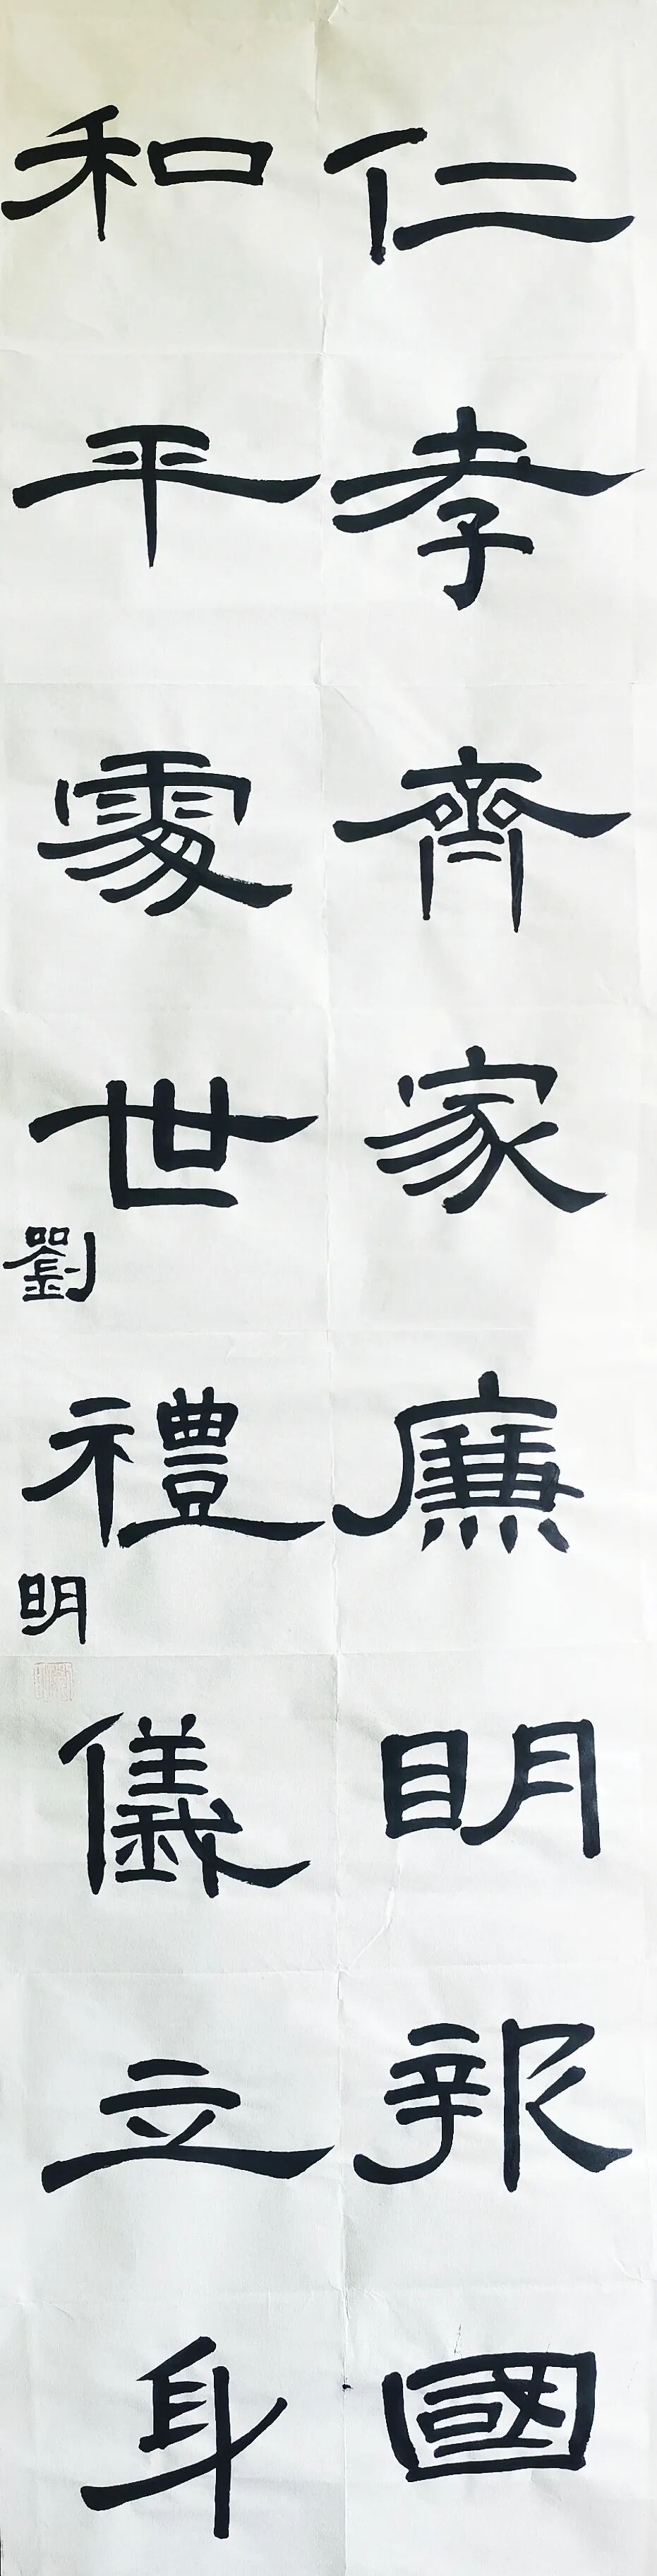 仁孝齊家廉明報國
和平處世禮儀立身
劉明